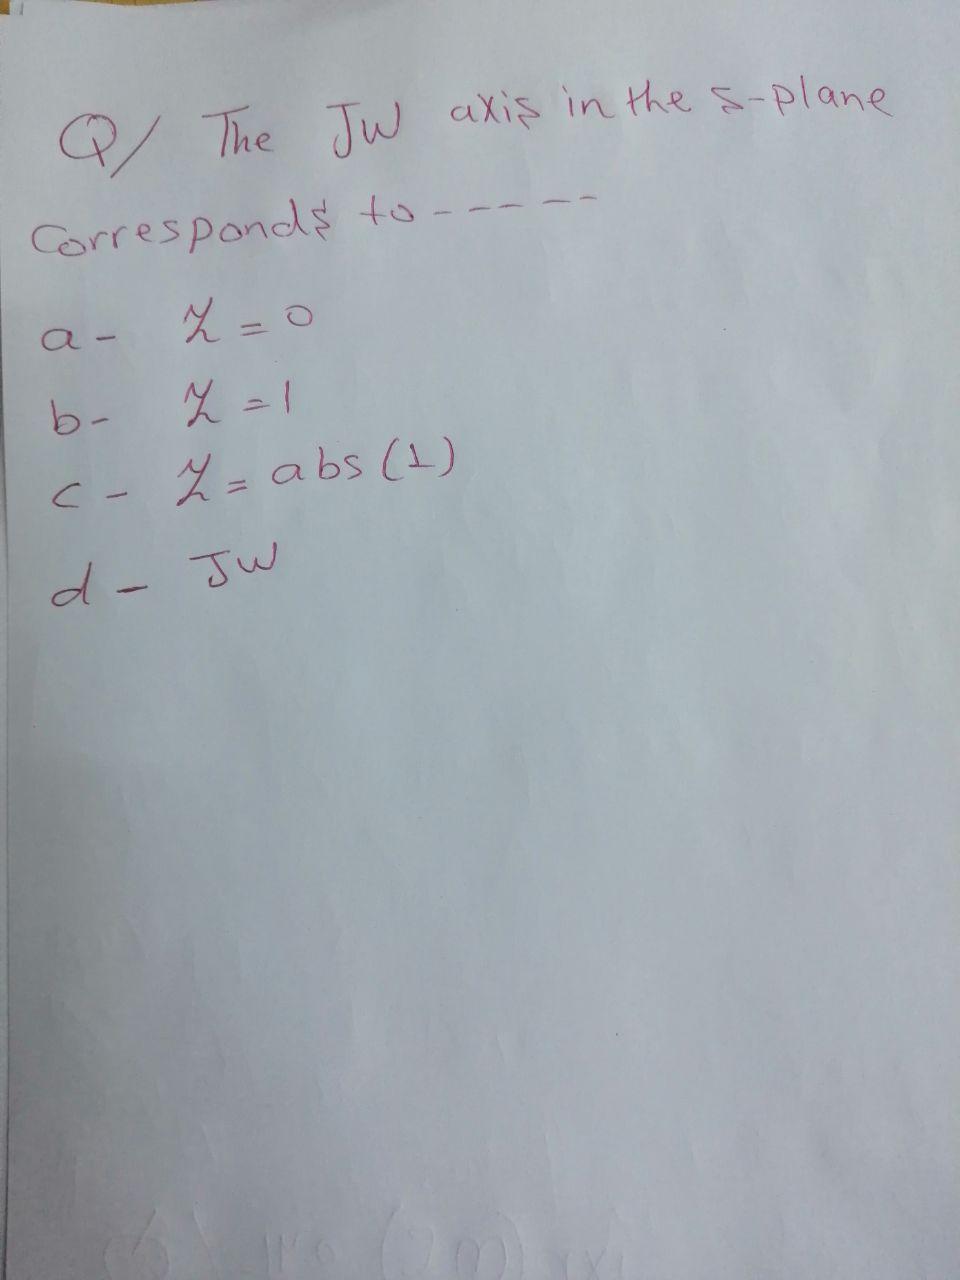 Q/ The JW axis in the s-plane
Corresponds to -----
a- Z=0
b- Z=1
c- Z=abs(1)
d- JW